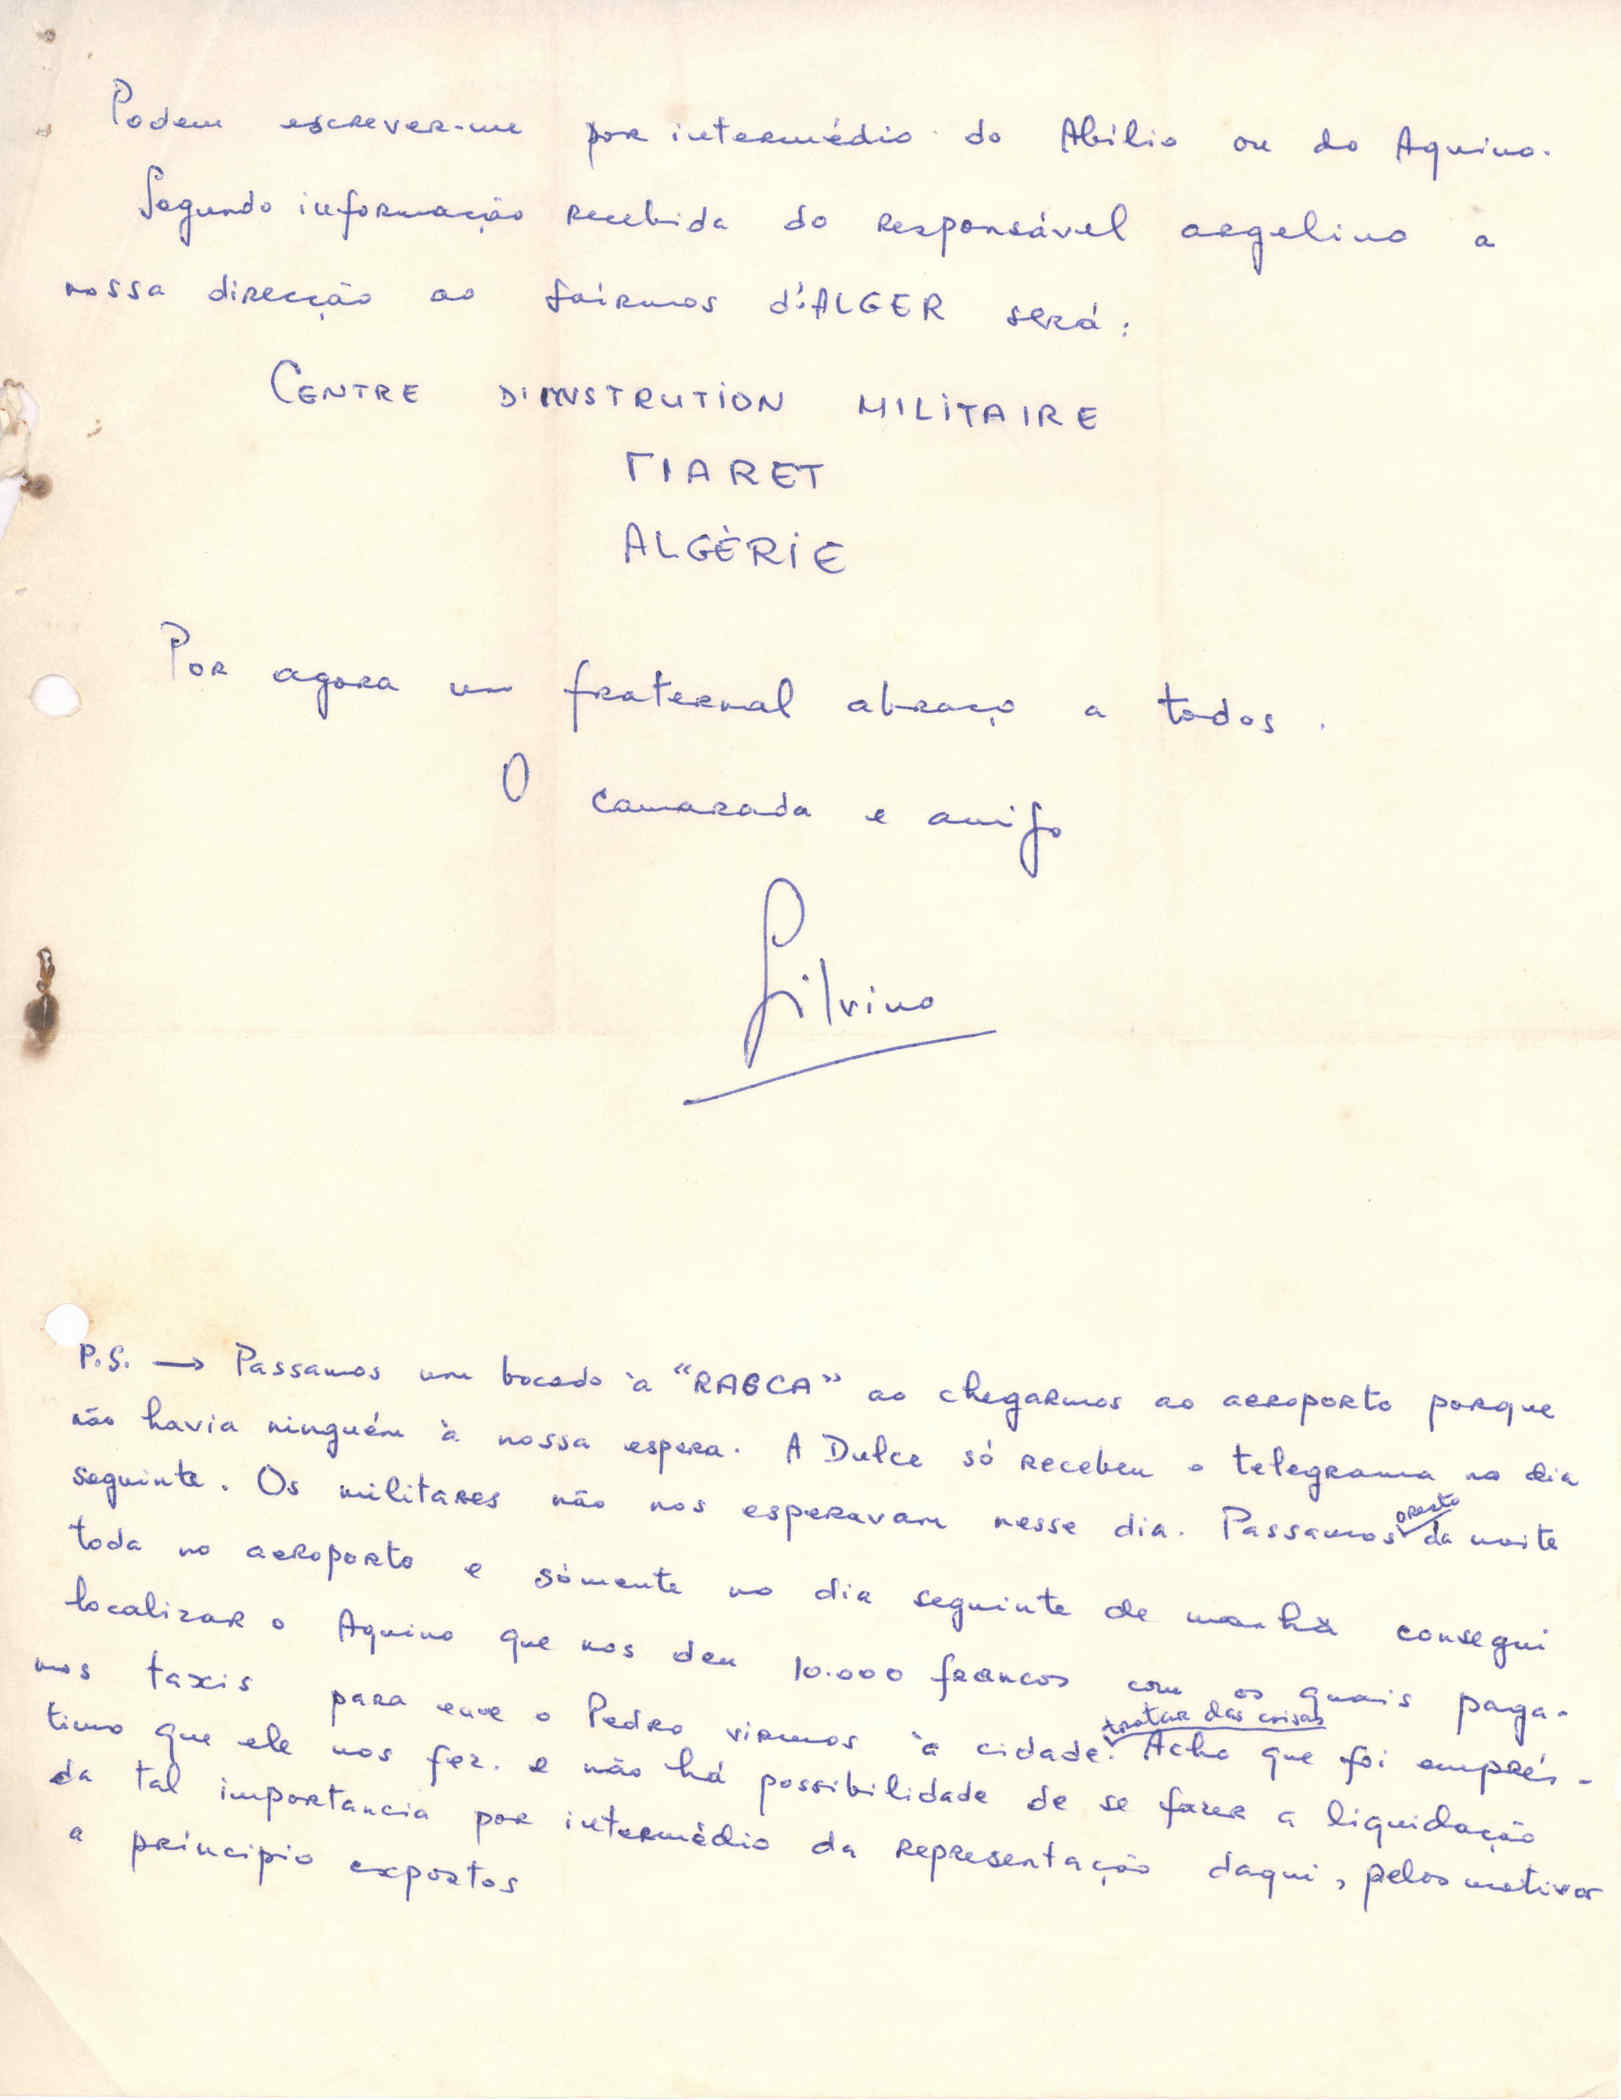 Podem escrever-me por intermédio do Abílio ou do Aquino.
Segundo informação recebida do responsável argelino a
nossa direcção ao sairmos d'ALGER será:
CENTRE D'INSTRUTION MILITAIRE
TIARET
ALGÉRIE
Por agora um fraternal abraço a todos.
O camarada e amigo
Silvino
P.S. → Passamos um bocado à "RASCA" ao chegarmos ao aeroporto porque
não havia ninguém à nossa espera. A Dulce só recebeu o telegrama no dia
seguinte. Os militares não nos esperavam nesse dia. Passamos o resto da noite
toda no aeroporto e sòmente no dia seguinte de manhã consegui
localizar o Aquino que nos deu 10.000 francos com os quais paga-
mos taxis para eu e o Pedro virmos à cidade tratar das coisas. Acho que foi emprés-
timo que ele nos fez. e não há possibilidade de se fazer a liquidação
da tal importancia por intermédio da representação daqui, pelos motivos
a princípio expostos